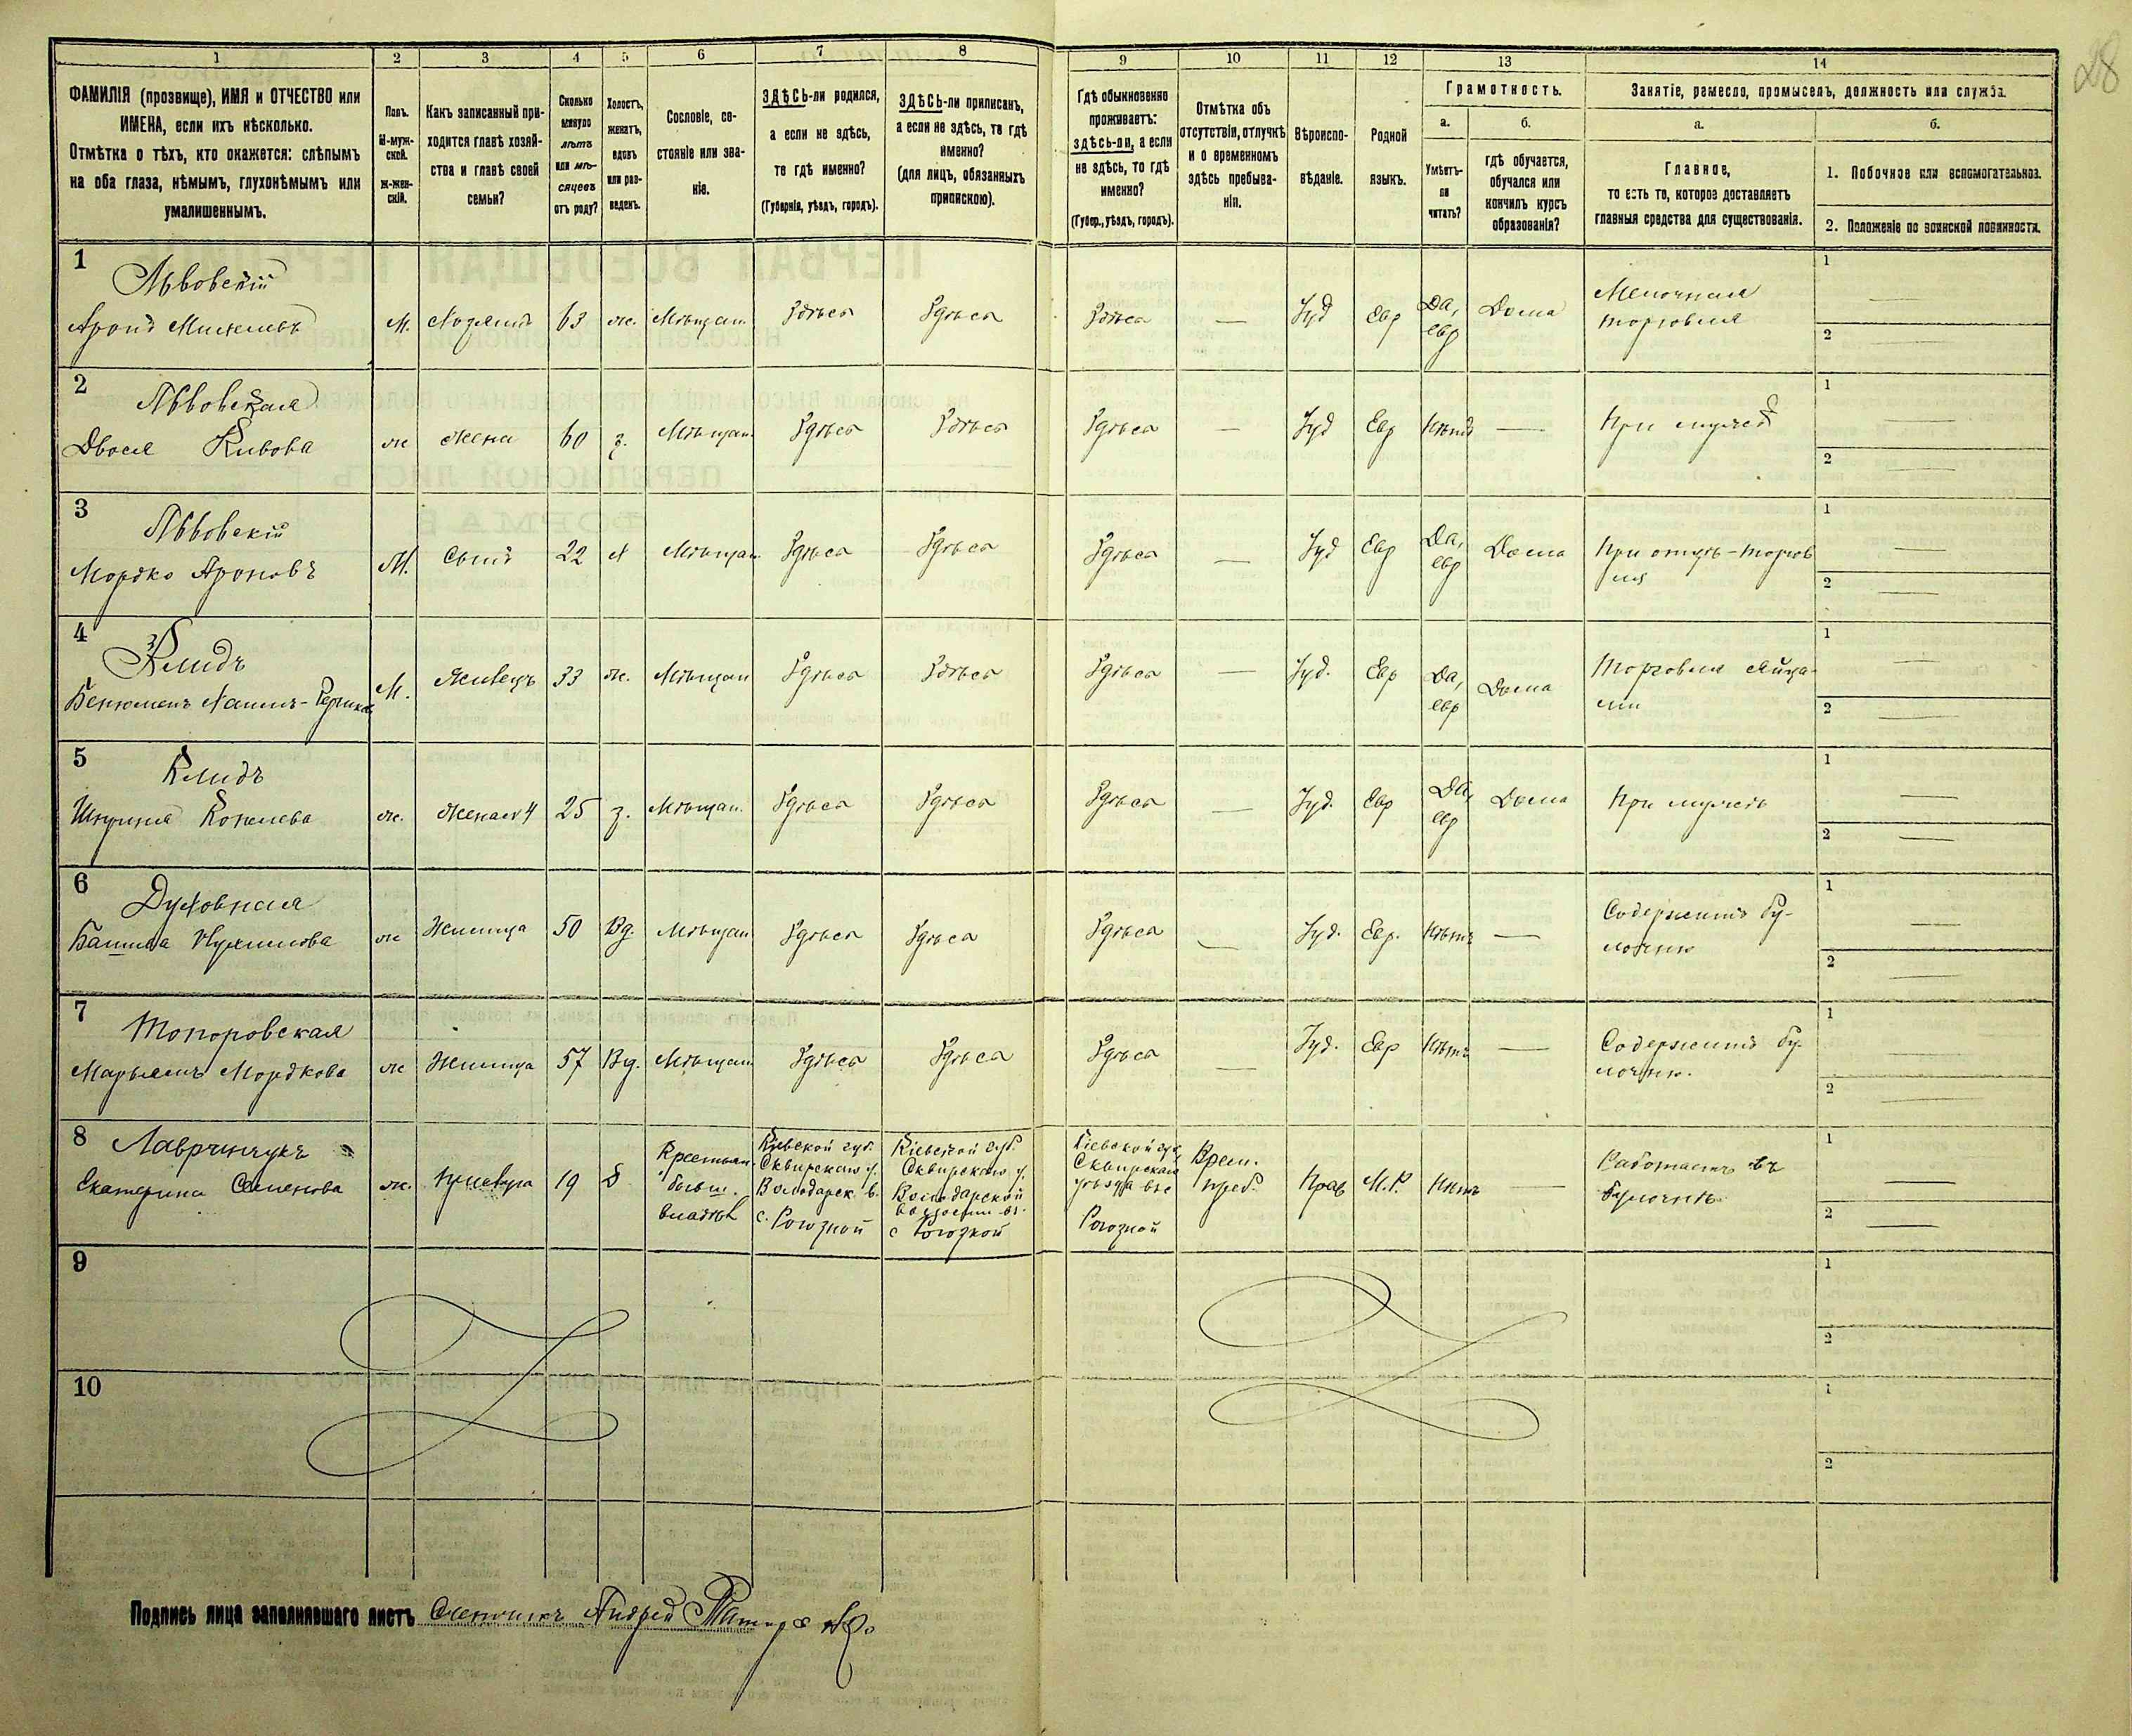 28
1 2 3 4 5 6 7 8 9 10 11 12 13 14
ФАМИЛІЯ (прозвище), ИМЯ и ОТЧЕСТВО или
ИМЕНА, если ихъ нѣсколько.
Отмѣтка о тѣхъ, кто окажется: слѣпымъ
на оба глаза, нѣмымъ, глухонѣмымъ или
умалишеннымъ.
Полъ.
М-муж-
ской.
Ж-жен-
скій.
Какъ записанный при-
ходится главѣ хозяй-
ства и главѣ своей
семьи?
Сколько
минуло
лѣтъ
или мѣ-
сяцевъ
отъ роду?
Холостъ,
женатъ,
вдовъ
или раз-
веденъ.
Сословіе, со-
стояніе или зва-
ніе.
ЗДѢСЬ-ли родился,
а если не здѣсь,
то гдѣ именно?
(Губернія, уѣздъ, городъ).
ЗДѢСЬ-ли приписанъ,
а если не здѣсь, то гдѣ
именно?
(для лицъ, обязанныхъ
припискою).
Гдѣ обыкновенно
проживаетъ:
здѣсь-ли, а если
не здѣсь, то гдѣ
именно?
(Губер., уѣздъ, городъ).
Отмѣтка объ
отсутствіи, отлучкѣ
и о временномъ
здѣсь пребыва-
ніи.
Вѣроиспо-
вѣданіе.
Родной
языкъ.
Грамотность.
а.
Умѣетъ-
ли
читать?
б.
гдѣ обучается,
обучался или
кончилъ курсъ
образованія?
Занятіе, ремесло, промыселъ, должность или служба.
а.
Главное,
то есть то, которое доставляетъ
главныя средства для существованія.
б.
1. Побочное или вспомогательное.
2. Положеніе по воинской повинности.
1
Львовскій
Аронъ М. Хозяинъ 63 ж. Мѣщан. Здѣсь Здѣсь Здѣсь — Іуд Евр Да,
евр Дома Мелочная
торговля
1 —
2 —
2
Львовская
Двося Кивова ж Жена 60 з. Мѣщан. Здѣсь Здѣсь Здѣсь — Іуд Евр Нѣтъ — При мужѣ
1 —
2 —
3
Львовскій
Мордко Ароновъ М. Сынъ 22 х Мѣщан. Здѣсь Здѣсь Здѣсь — Іуд Евр Да,
евр Дома При отцѣ - торгов
ля
1 —
2 —
4
Клидъ
М. Жилецъ 33 ж. Мѣщан Здѣсь Здѣсь Здѣсь — Іуд. Евр Да,
евр Дома Торговля яйца-
ми
1 —
2 —
5
Клидъ
ж. Жена №4 25 з. Мѣщан. Здѣсь Здѣсь Здѣсь — Іуд. Евр Да,
евр Дома При мужѣ
1 —
2 —
6
Духовная
ж Жилица 50 Вд. Мѣщан Здѣсь Здѣсь Здѣсь — Іуд. Евр. Нѣтъ — Содержитъ бу-
лочню
1 —
2 —
7
Топоровская
Марьямъ Мордкова ж Жилица 57 Вд. Мѣщан. Здѣсь Здѣсь Здѣсь — Іуд. Евр Нѣтъ — Содержитъ бу-
лочню.
1 —
2 —
8
Лавринчукъ
Екатерина Семенова ж. 19 д Крестьян.
бывш.
владѣл
Кіевской губ.
Сквирскаго у.
Володарск. в.
с. Рогозной
Кіевской губ.
Сквирскаго у.
Володарской
волости въ
с Рогозной
Кіевской губ.
Сквирскаго
уѣзда въ с
Рогозной
Врем.
преб. Прав М.Р. Нѣтъ — Работаетъ въ
булочнѣ
1 —
2 —
9
1
2
10
1
2
Подпись лица заполнявшаго листъ Счетчикъ Андрей